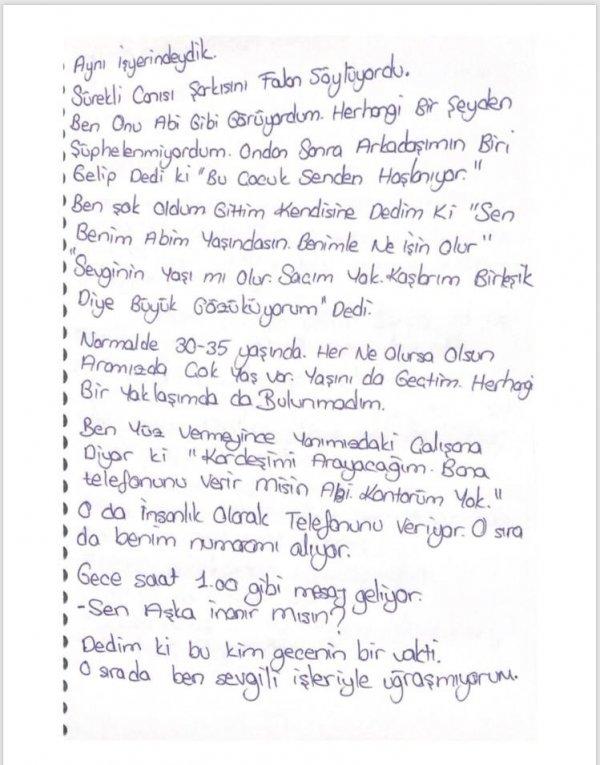 Aynı işyerindeydik.
Sürekli Canısı Şarkısını Falan Söylüyordu.
Ben Onu Abi Gibi Görüyordum. Herhangi Bir Şeyden
Şüphelenmiyordum. Ondan Sonra Arkadaşımın Biri
Gelip Dedi ki "Bu Çocuk Senden Hoşlanıyor."
Ben şok oldum Gittim Kendisine Dedim Ki "Sen
Benim Abim Yaşındasın. Benimle Ne İşin Olur"
"Sevginin Yaşı mı Olur. Saçım Yok. Kaşlarım Birleşik
Diye Büyük Gözüküyorum" Dedi.
Normalde 30-35 yaşında. Her Ne Olursa Olsun
Aramızda Çok Yaş var. Yaşını da Geçtim. Herhangi
Bir Yaklaşımda da Bulunmadım.
Ben Yüz Vermeyince Yanımızdaki Çalışana
Diyor ki "Kardeşimi Arayacağım. Bana
telefonunu verir misin Abi. Kontörüm Yok."
O da İnsanlık Olarak Telefonunu veriyor. O sıra
da benim numaramı alıyor.
Gece saat 1.00 gibi mesaj geliyor.
-Sen Aşka inanır mısın?
Dedim ki bu kim gecenin bir vakti.
O sırada ben sevgili işleriyle uğraşmıyorum.